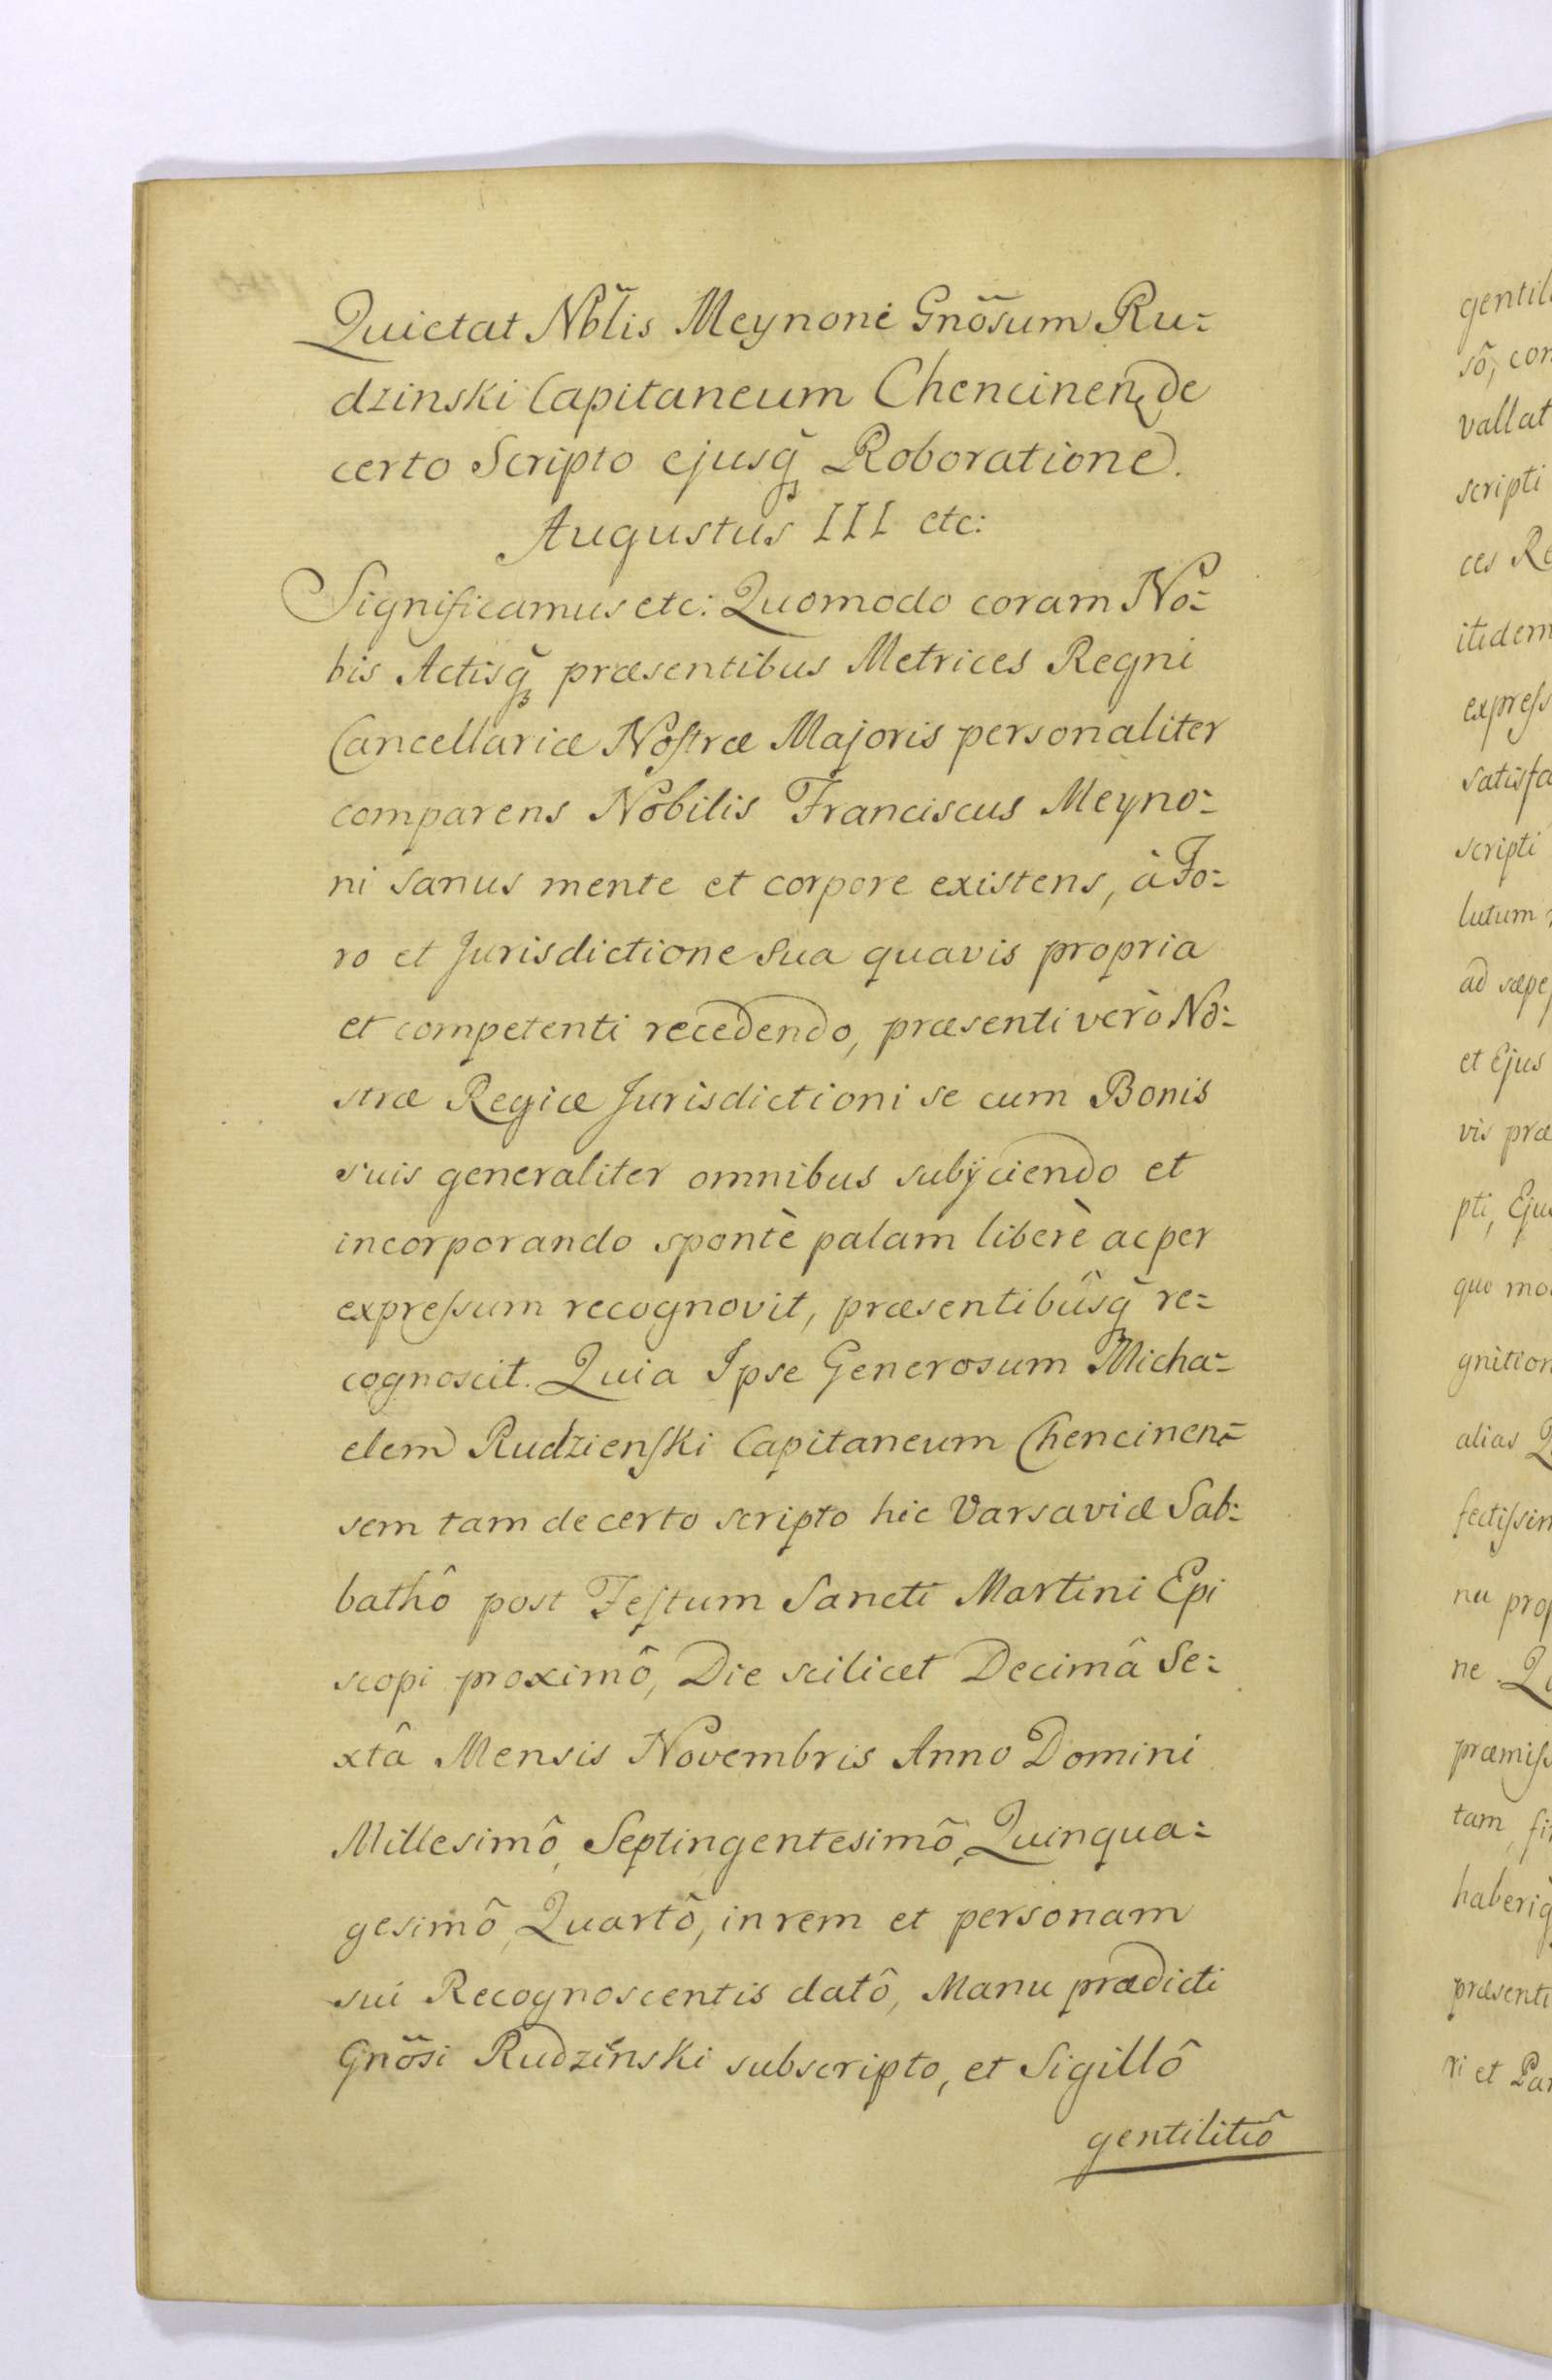 Quietat Nb̃lis Meynoni Gnõsum Ru=
dzinski Capitaneum Chencinen de
certo Scripto ejusq̃ Roboratione.
Augustus III etc:
Significamus etc: Quomodo coram No=
bis Actisq̃ præsentibus Metrices Regni
Cancellariæ Noſtræ Majoris personaliter
comparens Nobilis Franciscus Meyno=
ni sanus mente et corpore existens, à Fo=
ro et Jurisdictione sua quavis propria
et competenti recedendo, præsenti verò No=
stræ Regiæ Jurisdictioni se cum Bonis
suis generaliter omnibus subÿciendo et
incorporando spontè palam liberè ac per
expreſsum recognovit, præsentibûsq̃ re=
cognoscit. Quia Ipse Generosum Micha=
elem Rudzienſki Capitaneum Chencinen=
sem tam de certo scripto hic Varsaviæ Sab=
bathô post Feſtum Sancti Martini Epi
scopi proximô, Die scilicet Decimâ Se=
xtâ Mensis Novembris Anno Domini
Millesimô, Septingentesimô, Quinqua=
gesimô, Quartô, in rem et personam
sui Recognoscentis datô, Manu prædicti
Gnõsi Rudziński subscripto, et Sigillô
gentilitiô
gentil
sô, con
vallat
scripti
ces Re
itidem
expreſs
satisfa
scripti
lutum
ad sæpe
et Ejus
vis præ
pti, Eju
quo mo
gnition
alias Q
fectiſsim
nu prop
ne. Q
præmiſs
tam, fi
haberiq̃
præsenti
ri et Par